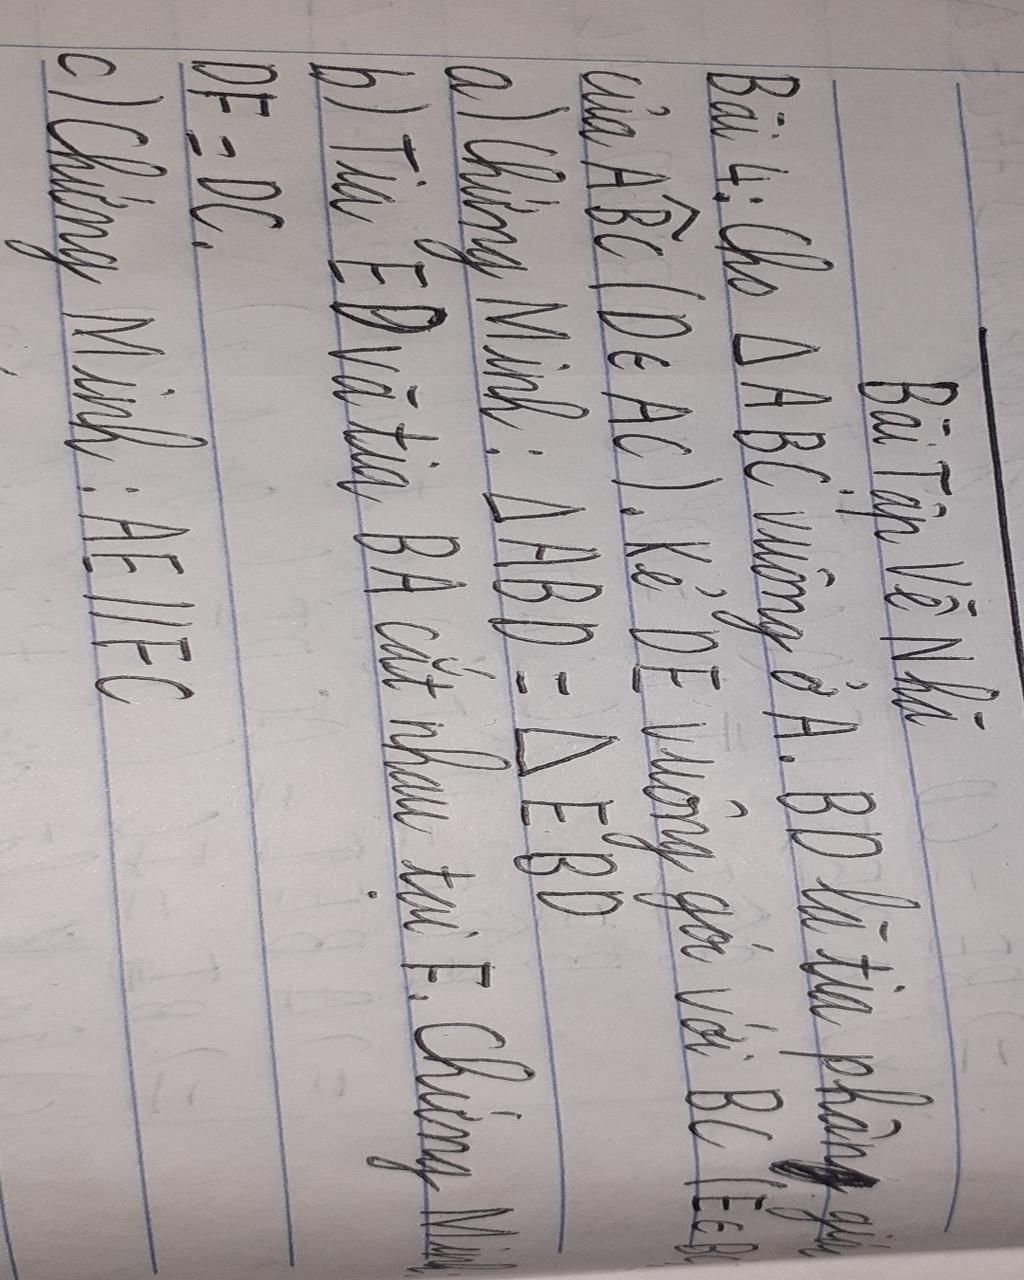 Bài Tập Về Nhà
Bài 4: Cho Δ ABC vuông ở A. BD là tia phân giá
của ABC (D∈ AC). Kẻ DE vuông góc với BC (E∈ B
a) Chứng Minh: Δ ABD = Δ EBD
b) Tia ED và tia BA cắt nhau tại F. Chứng Minh
DF = DC.
c) Chứng Minh: AE//FC